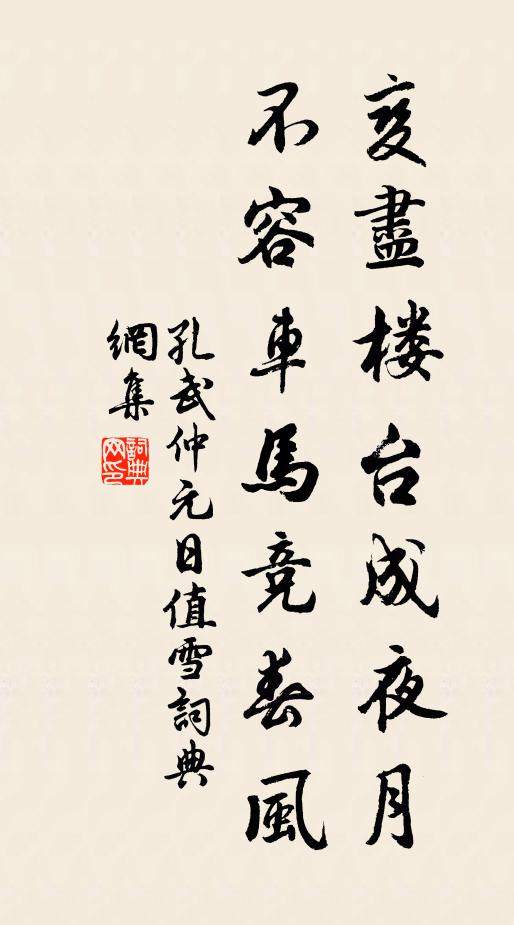 变盡楼台成夜月
不容車馬竞春風
孔武仲元日值雪詞典
網集
詞典网印